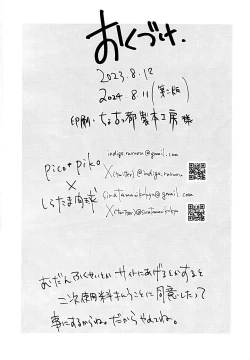 おくづけ.
2023.8.12
2024.8.11(第二版)
印刷:ちょこっ都製本工房 様
pico+piko
indigo.rairoru@gmail.com
X(twitter)@indigo.rairoru
×
しらたま肉球
siratamanikukyu@gmail.com
X(twitter)@siratamanikukyu
おだんふくせいとかサイトにあげるとかすると
二次使用料きらうことに同意したって
事にするからね。だからやめてね。